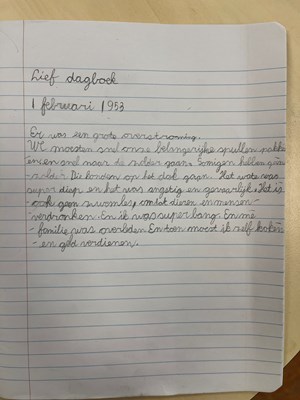 Lief dagboek
1 februari 1953
Er was een grote overstroming.
We moesten snel onze belangerijke spullen pakke
en en snel naar de solder gaan. Somigen hellen geen
solder. Die konden op het dak gaan. Het wate was
super diep en het was angstig en gevaarlijk. Het is
ook geen, omdat dieren en mensen
verdronken. En ik was super bang. En mè
familie was overlden. En toen moest ik self koken
en geld verdienen.